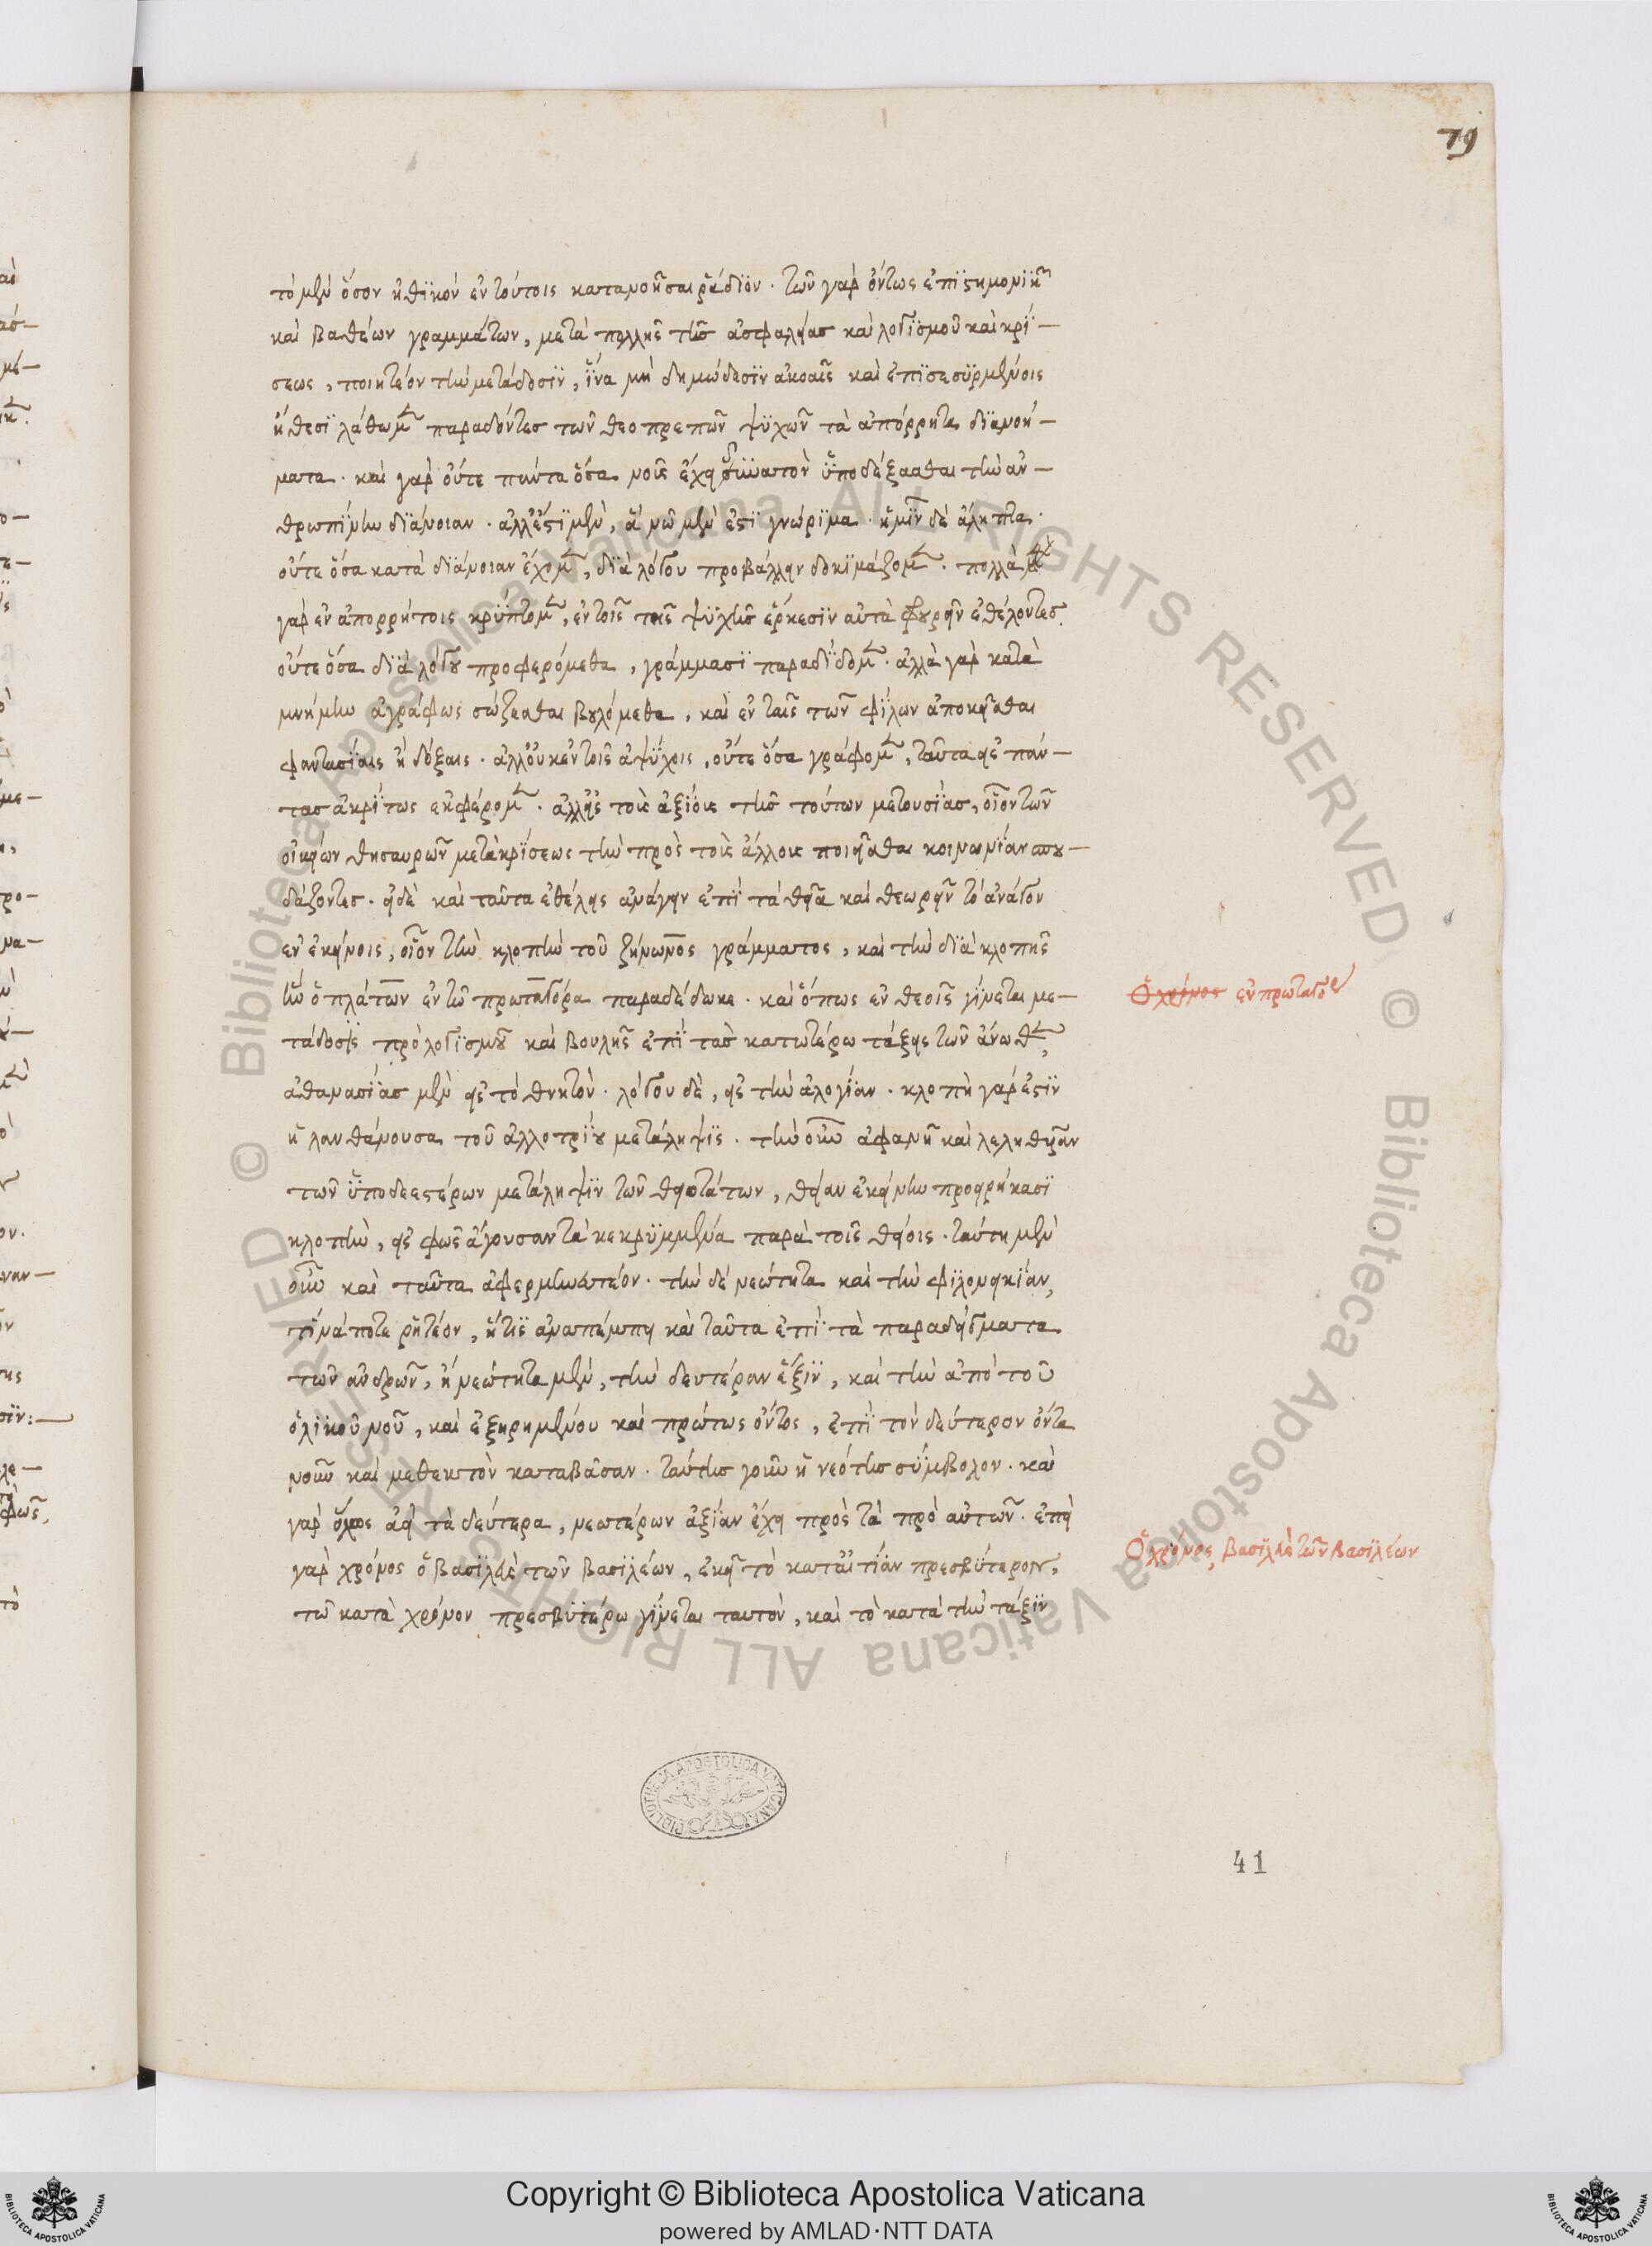 79
τὸ μὲν ὅσον ἠθϊκὸν ἐν τούτοις κατανοῆσαι ῥᾴδϊον · τῶν γὰρ ὄντως ἐπϊστημονϊκῶν
καὶ βαθέων γραμμάτων, μετὰ πολλῆς τῆς ἀσφαλείας καὶ λογϊσμοῦ καὶ κρί—
σεως, ποιητέον τὴν μετάδοσϊν, ἵνα μὴ δημώδεσϊν ἀκοαῖς καὶ ἐπϊσεσϋρμένοις
ἤθεσϊ λάθωμεν παραδόντες τῶν θεοπρεπῶν ψϋχῶν τὰ ἀπόρρητα δϊανοή—
ματα · καὶ γὰρ οὔτε πάντα ὅσα νοῦς ἔχει δϋνατὸν ὑποδέξασθαι τὴν ἀν—
θρωπίνην δϊάνοιαν · ἀλλ' ἔστϊ μὲν, ἃ νῷ μέν ἐστϊ γνώρϊμα · ἡμῖν δὲ ἄληπτα ·
οὔτε ὅσα κατὰ δϊάνοιαν ἔχομεν, δϊὰ λόγου προβάλλειν δοκϊμάζομεν · πολλὰ μὲν
γὰρ ἐν ἀπορρήτοις κρύπτομεν, ἐν τοῖς τῆς ψϋχῆς ἕρκεσϊν αὐτὰ φρουρεῖν ἐθέλοντες.
οὔτε ὅσα δϊὰ λόγου προφερόμεθα, γράμμασϊ παραδίδομεν · ἀλλὰ γὰρ κατὰ
μνήμην ἀγράφως σώζεσθαι βουλόμεθα, καὶ ἐν ταῖς τῶν φίλων ἀποκεῖσθαι
φαντασίαις ἢ δόξαις · ἀλλ' οὐκ ἐν τοῖς ἀψύχοις, οὔτε ὅσα γράφομεν, ταῦτα εἰς πάν—
τας ἀκρίτως ἐκφέρομεν · ἀλλ' εἰς τοὺς ἀξίους τῆς τούτων μετουσίας, οἷον τῶν
οἰκείων θησαυρῶν μετὰ κρίσεως τὴν πρὸς τοὺς ἄλλους ποιεῖσθαι κοινωνίαν σπου—
δάζοντες · εἰ δὲ καὶ ταῦτα ἐθέλεις ἀνάγειν ἐπὶ τὰ θεῖα καὶ θεωρεῖν τὸ ἀνάλογον
ἐν ἐκείνοις, οἷον τὴν κλοπὴν τοῦ ζήνωνος γράμματος, καὶ τὴν δϊὰ κλοπῆς
ἣν ὁ πλάτων ἐν τῷ πρωταγόρᾳ παραδέδωκε · καὶ ὅπως ἐν θεοῖς γίνεται με—
τάδοσϊς πρὸ λογϊσμοῦ καὶ βουλῆς ἐπὶ τὰς κατωτέρω τάξεις τῶν ἄνωθεν,
ἀθανασίας μὲν εἰς τὸ θνητὸν · λόγου δὲ, εἰς τὴν ἀλογίαν · κλοπὴ γάρ ἐστϊν
ἡ λανθάνουσα τοῦ ἀλλοτρίου μετάληψϊς · τὴν οὖν ἀφανῆ καὶ λεληθυῖαν
τῶν ὑποδεεστέρων μετάληψϊν τῶν θειοτάτων, θείαν ἐκείνην προσειρήκασϊ
κλοπὴν, εἰς φῶς ἄγουσαν τὰ κεκρϋμμένα παρὰ τοῖς θείοις · ταύτη μὲν
οὖν καὶ ταῦτα ἀφερμηνευτέον · τὴν δὲ νεότητα καὶ τὴν φϊλονεικίαν,
τίνά ποτε ῥητέον, ἥτις ἀναπέμπει καὶ ταῦτα ἐπὶ τὰ παραδείγματα
τῶν ἀνδρῶν, ἢ νεότητα μὲν, τὴν δευτέραν ἕξϊν, καὶ τὴν ἀπὸ τοῦ
ὁλϊκοῦ νοῦ, καὶ ἐξῃρημένου καὶ πρώτως ὄντος, ἐπὶ τὸν δεύτερον ὄντα
νοῦν καὶ μεθεκτὸν καταβᾶσαν · ταύτης γοῦν ἡ νεότης σύμβολον · καὶ
γὰρ ὅλως ἀεὶ τὰ δεύτερα, νεωτέρων ἀξίαν ἔχει πρὸς τὰ πρὸ αὐτῶν · ἐπεὶ
γὰρ χρόνος ὁ βασϊλεὺς τῶν βασϊλέων, ἐκεῖ τὸ κατ' αἰτίαν πρεσβύτερον,
τῷ κατὰ χρόνον πρεσβϋτέρῳ γίνεται ταυτὸν, καὶ τὸ κατὰ τὴν τάξϊν
Ὁ χρόνος ἐν πρωταγόρᾳ
Ὁ χρόνος, βασϊλεὺς τῶν βασϊλέων
BIBLIOTHECA APOSTOLICA VATICANA
41
© Biblioteca Apostolica Vaticana ALL RIGHTS RESERVED © Biblioteca Apostolica Vaticana ALL RIGHTS RESERVED
Copyright © Biblioteca Apostolica Vaticana
powered by AMLAD·NTT DATA
BIBLIOTECA APOSTOLICA VATICANA
BIBLIOTECA APOSTOLICA VATICANA